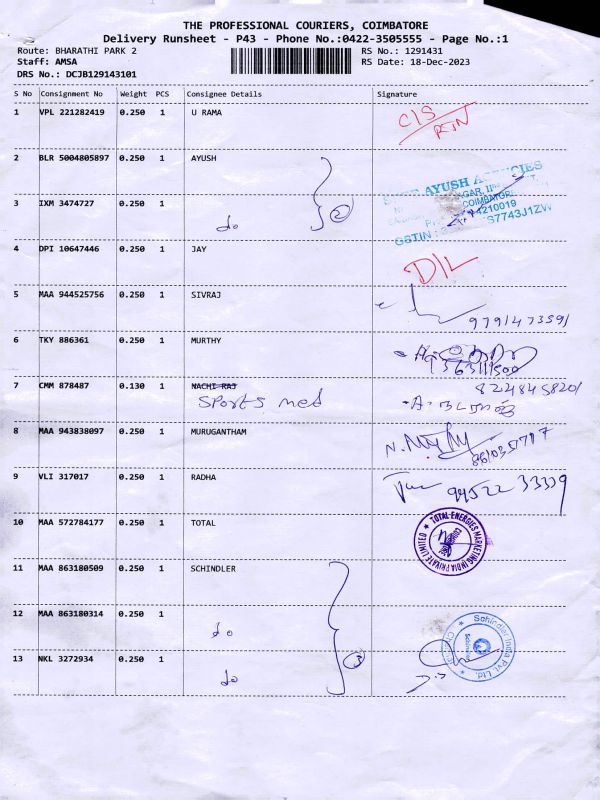 THE PROFESSIONAL COURIERS, COIMBATORE
Delivery Runsheet - P43 - Phone No.:0422-3505555 - Page No.:1
Route: BHARATHI PARK 2 RS No.: 1291431
Staff: AMSA RS Date: 18-Dec-2023
DRS No.: DCJB129143101
S No Consignment No Weight PCS Consignee Details Signature
1 VPL 221282419 0.250 1 U RAMA C/S
RTN
2 BLR 5004805897 0.250 1 AYUSH
AYUSH AGENCIES
3 IXM 3474727 0.250 1 do 2
COIMBATORE
GSTIN : S7743J1ZW
4 DPI 10647446 0.250 1 JAY D/L
5 MAA 944525756 0.250 1 SIVRAJ
9791473591
6 TKY 886361 0.250 1 MURTHY
7 CMM 878487 0.130 1 NACHI RAJ 8248458201
Sports med
8 MAA 943838097 0.250 1 MURUGANTHAM
9 VLI 317017 0.250 1 RADHA 99522 33339
10 MAA 572784177 0.250 1 TOTAL
TOTAL ENERGIES MARKETING INDIA PRIVATE LIMITED
11 MAA 863180509 0.250 1 SCHINDLER
12 MAA 863180314 0.250 1
do
Schindler India Pvt. Ltd.
13 NKL 3272934 0.250 1 3
do